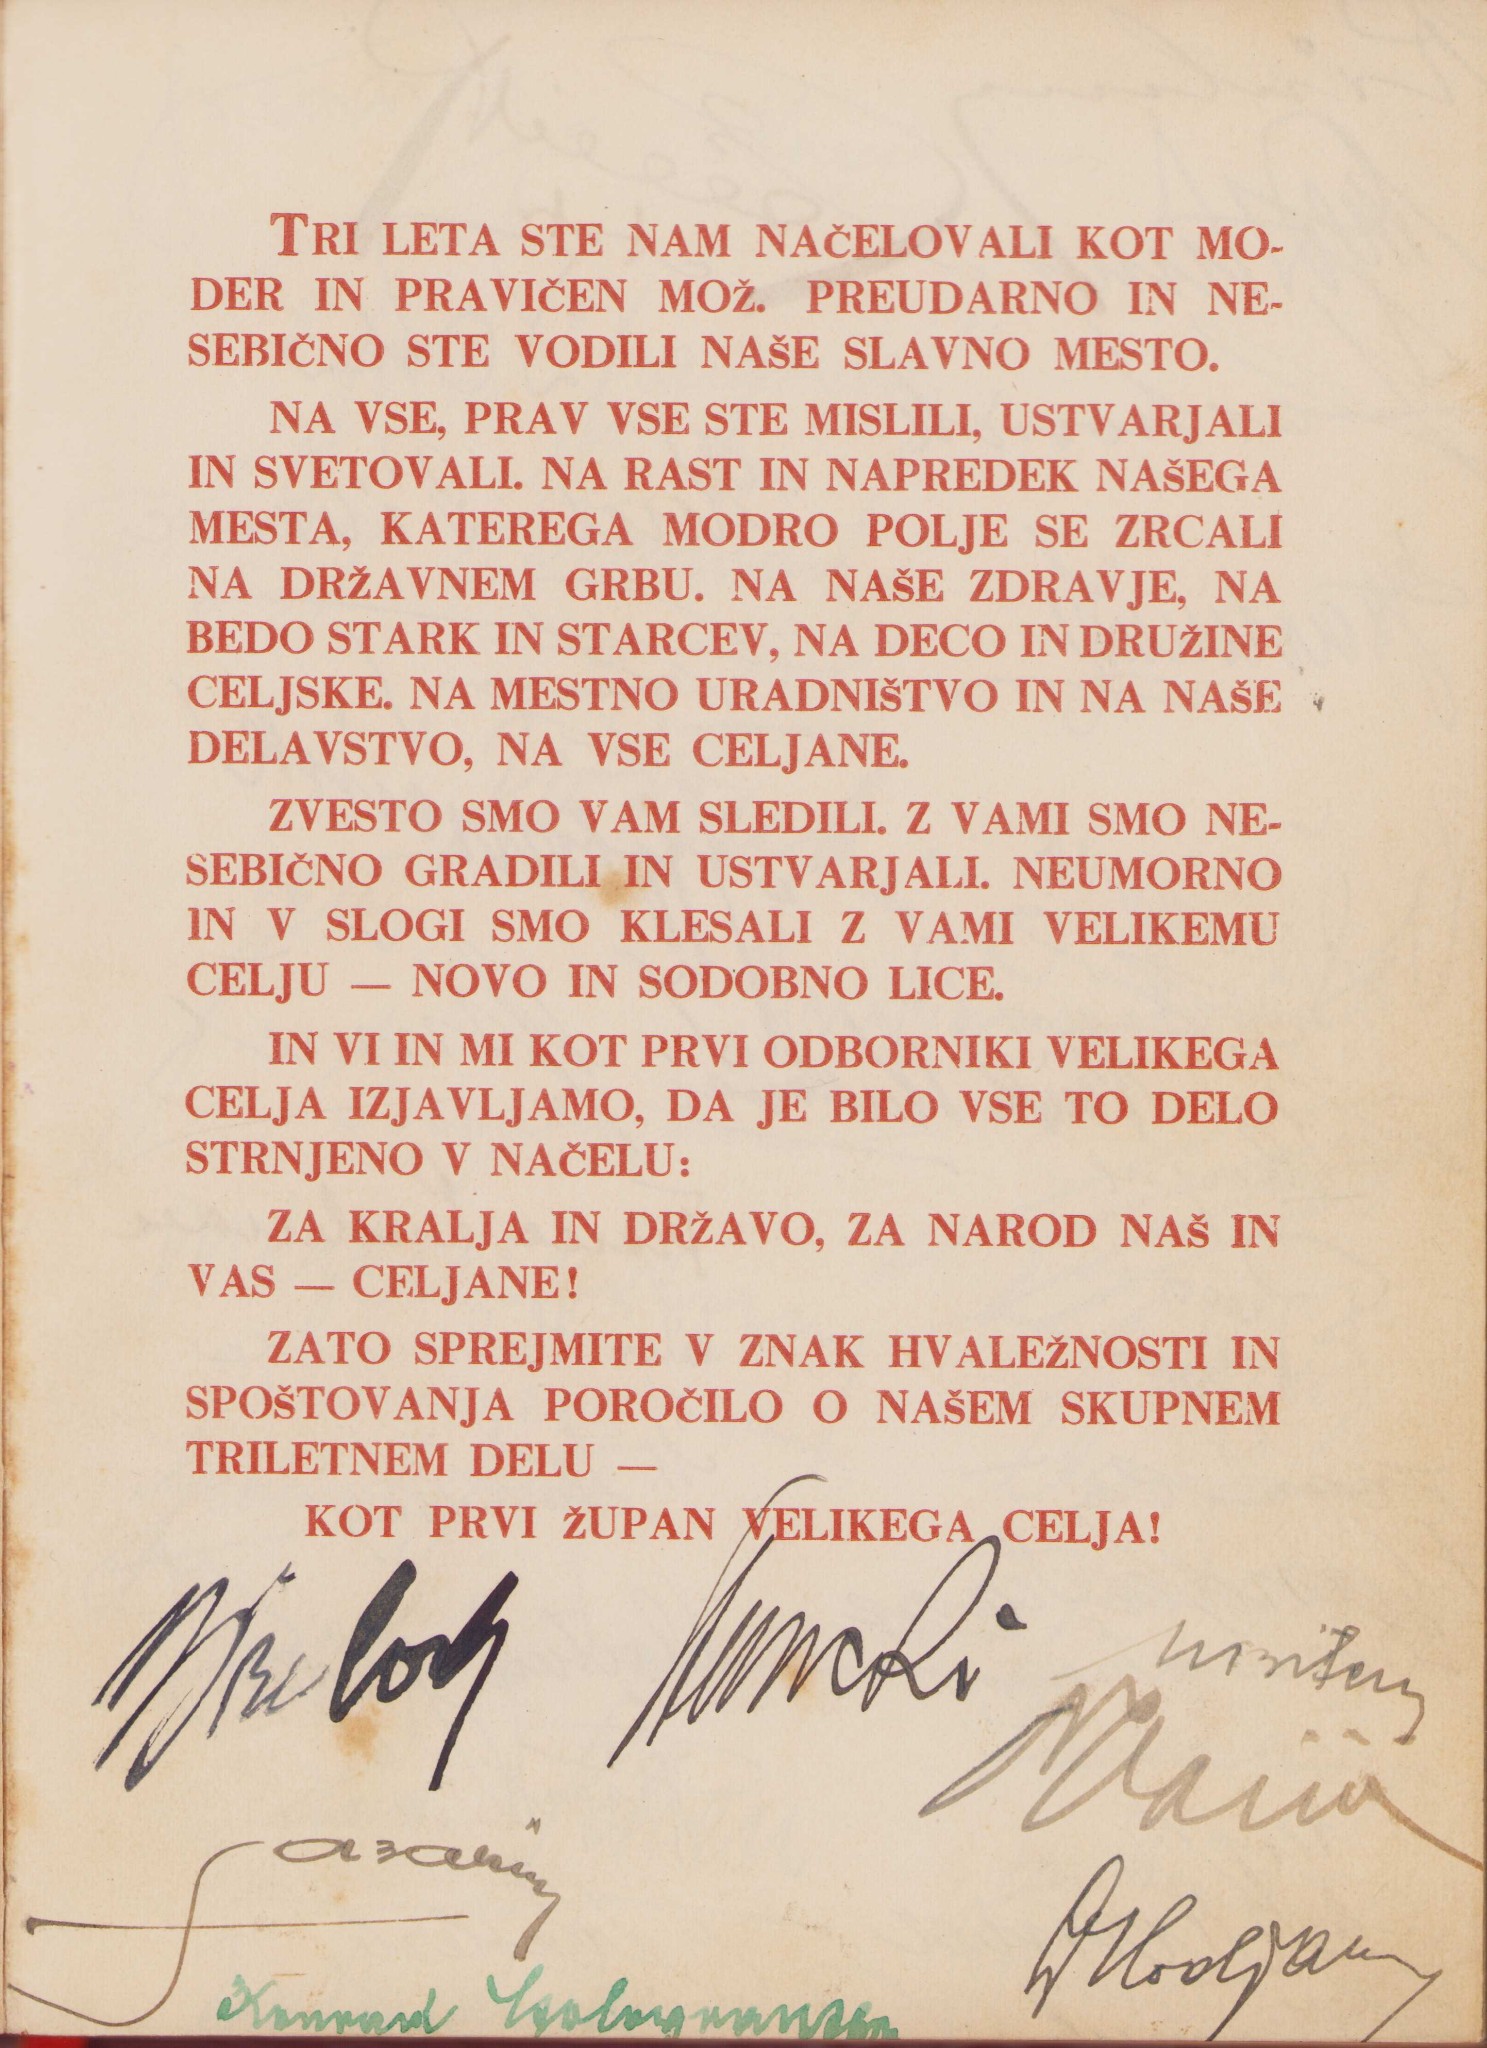 TRI LETA STE NAM NAČELOVALI KOT MO-
DER IN PRAVIČEN MOŽ. PREUDARNO IN NE-
SEBIČNO STE VODILI NAŠE SLAVNO MESTO.
NA VSE, PRAV VSE STE MISLILI, USTVARJALI
IN SVETOVALI. NA RAST IN NAPREDEK NAŠEGA
MESTA, KATEREGA MODRO POLJE SE ZRCALI
NA DRŽAVNEM GRBU. NA NAŠE ZDRAVJE, NA
BEDO STARK IN STARCEV, NA DECO IN DRUŽINE
CELJSKE. NA MESTNO URADNIŠTVO IN NA NAŠE
DELAVSTVO, NA VSE CELJANE.
ZVESTO SMO VAM SLEDILI. Z VAMI SMO NE-
SEBIČNO GRADILI IN USTVARJALI. NEUMORNO
IN V SLOGI SMO KLESALI Z VAMI VELIKEMU
CELJU — NOVO IN SODOBNO LICE.
IN VI IN MI KOT PRVI ODBORNIKI VELIKEGA
CELJA IZJAVLJAMO, DA JE BILO VSE TO DELO
STRNJENO V NAČELU:
ZA KRALJA IN DRŽAVO, ZA NAROD NAŠ IN
VAS — CELJANE!
ZATO SPREJMITE V ZNAK HVALEŽNOSTI IN
SPOŠTOVANJA POROČILO O NAŠEM SKUPNEM
TRILETNEM DELU —
KOT PRVI ŽUPAN VELIKEGA CELJA!
Konrad